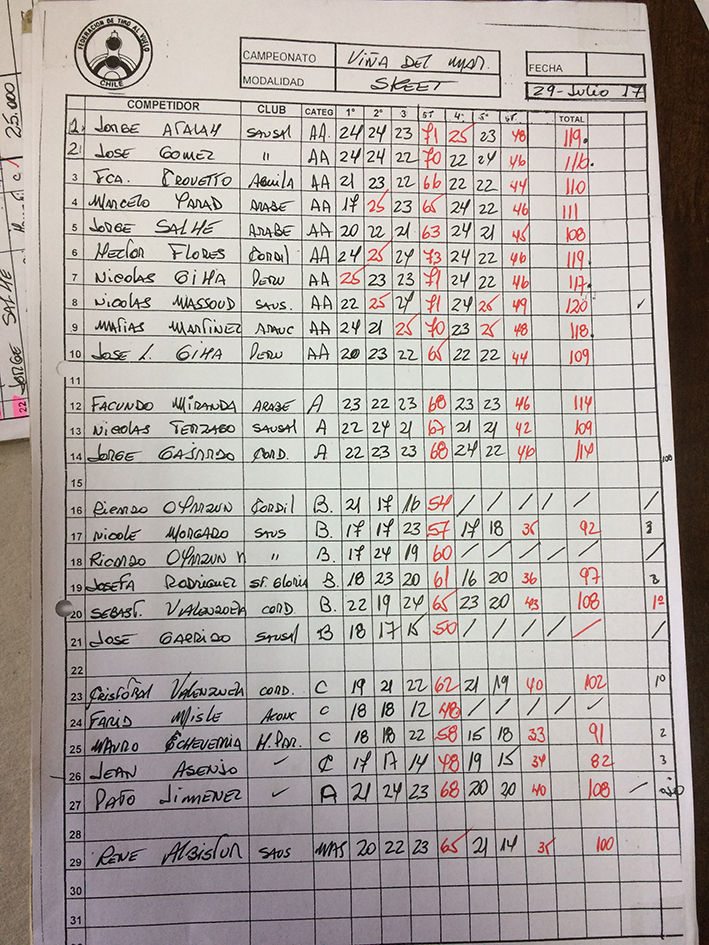 FEDERACION DE TIRO AL VUELO
CHILE
CAMPEONATO VIÑA DEL MAR.
MODALIDAD SKEET
FECHA
29-Julio 17
COMPETIDOR CLUB CATEG 1º 2º 3 ST 4º 5º ST. TOTAL
1. JORGE ATALAH SAUSAL AA. 24 24 23 71 25 23 48 119.
2. JOSE GOMEZ " AA 24 24 22 70 22 24 46 116.
3 FCA. CROVETTO Aguila AA 21 23 22 66 22 22 44 110
4 MARCELO PARAD ARABE AA 17 25 23 65 24 22 46 111
5 JORGE SALHE ARABE AA 20 22 21 63 24 21 45 108
6 HECTOR FLORES CORDIL AA 24 25 24 73 24 22 46 119.
7 NICOLAS GIHA PERU AA 25 23 23 71 24 22 46 117.
8 NICOLAS MASSOUD SAUS. AA 22 25 24 71 24 25 49 120 ✓
9 MATIAS MARTINEZ ARAUC AA 24 21 25 70 23 25 48 118.
10 JOSE L. GIHA PERU AA 20 23 22 65 22 22 44 109
11
12 FACUNDO MIRANDA ARABE A 23 22 23 68 23 23 46 114
13 NICOLAS TERZAGO SAUSAL A 22 24 21 67 21 21 42 109
14 JORGE GAJARDO CORD. A 22 23 23 68 24 22 46 114
15
16 Ricardo OYARZUN Cordil B. 21 17 16 54 / / / / / /
17 NICOLE MORGADO SAUS B. 17 17 23 57 17 18 35 92 3
18 Ricardo OYARZUN " B. 17 24 19 60 / / / / / /
19 JOSEFA RODRIGUEZ ST. Gloria B. 18 23 20 61 16 20 36 97
20 SEBAST. VALENZUELA CORD. B. 22 19 24 65 23 20 43 108 1º
21 JOSE GARRIDO SAUSAL B 18 17 15 50 / / / / /
22
23 CRISTOBAL VALENZUELA CORD. C 19 21 22 62 21 19 40 102 1º
24 FARID MISLE ACONC C 18 18 12 48 / / / / ✓
25 MAURO ECHEVERRIA H. PAR. C 18 18 22 58 15 18 33 91 2
26 JEAN ASENJO ✓ C 17 17 14 48 19 15 34 82 3
27 PATO JIMENEZ ✓ A 21 24 23 68 20 20 40 108 /
28
29 RENE ALBISTUR SAUS MAS 20 22 23 65 21 14 35 100
30
31
22 JORGE SALHE
25.000